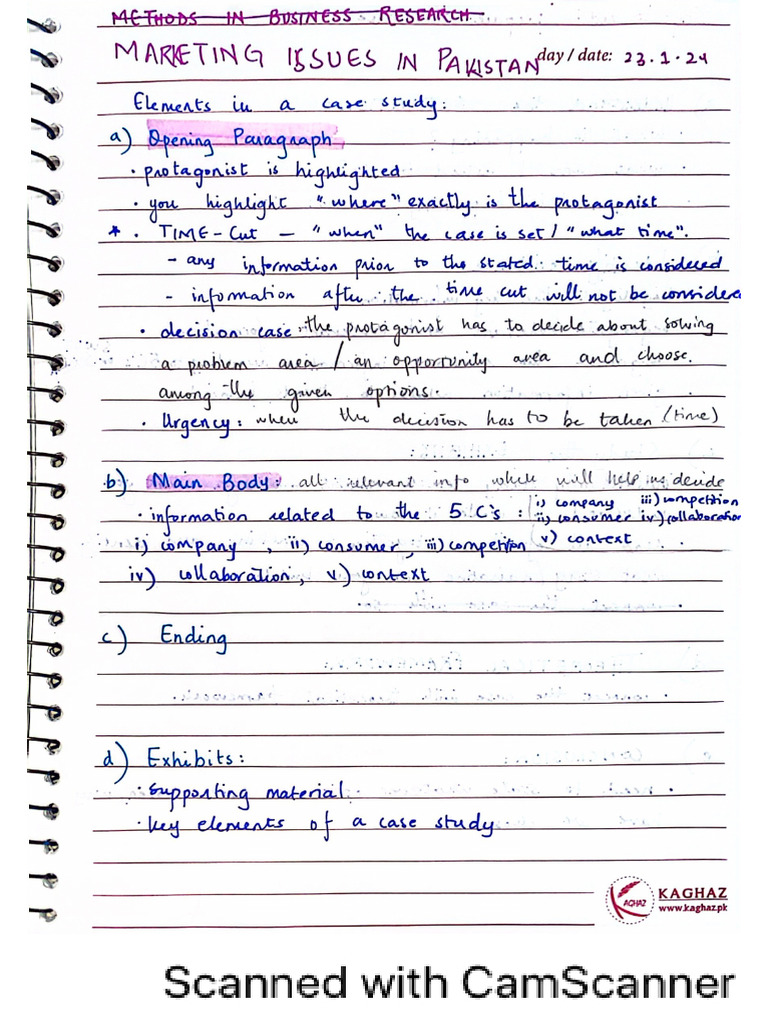 METHODS IN BUSINESS RESEARCH
MARKETING ISSUES IN PAKISTAN day / date: 23.1.24
Elements in a case study:
a) Opening Paragraph
· protagonist is highlighted
· you highlight "where" exactly is the protagonist
* · TIME-Cut – "when" the case is set / "what time".
- any information prior to the stated time is considered
- information after the time cut will not be considered
· decision case: the protagonist has to decide about solving
a problem area / an opportunity area and choose
among the given options.
· Urgency: when the decision has to be taken (time)
b) Main Body: all relevant info which will help us decide
· information related to the 5 C's : i) company iii) competition
ii) consumer iv) collaboration
v) context
i) company, ii) consumer, iii) competition
iv) collaboration, v) context
c) Ending
d) Exhibits:
· supporting material
· key elements of a case study
KAGHAZ
www.kaghaz.pk
Scanned with CamScanner